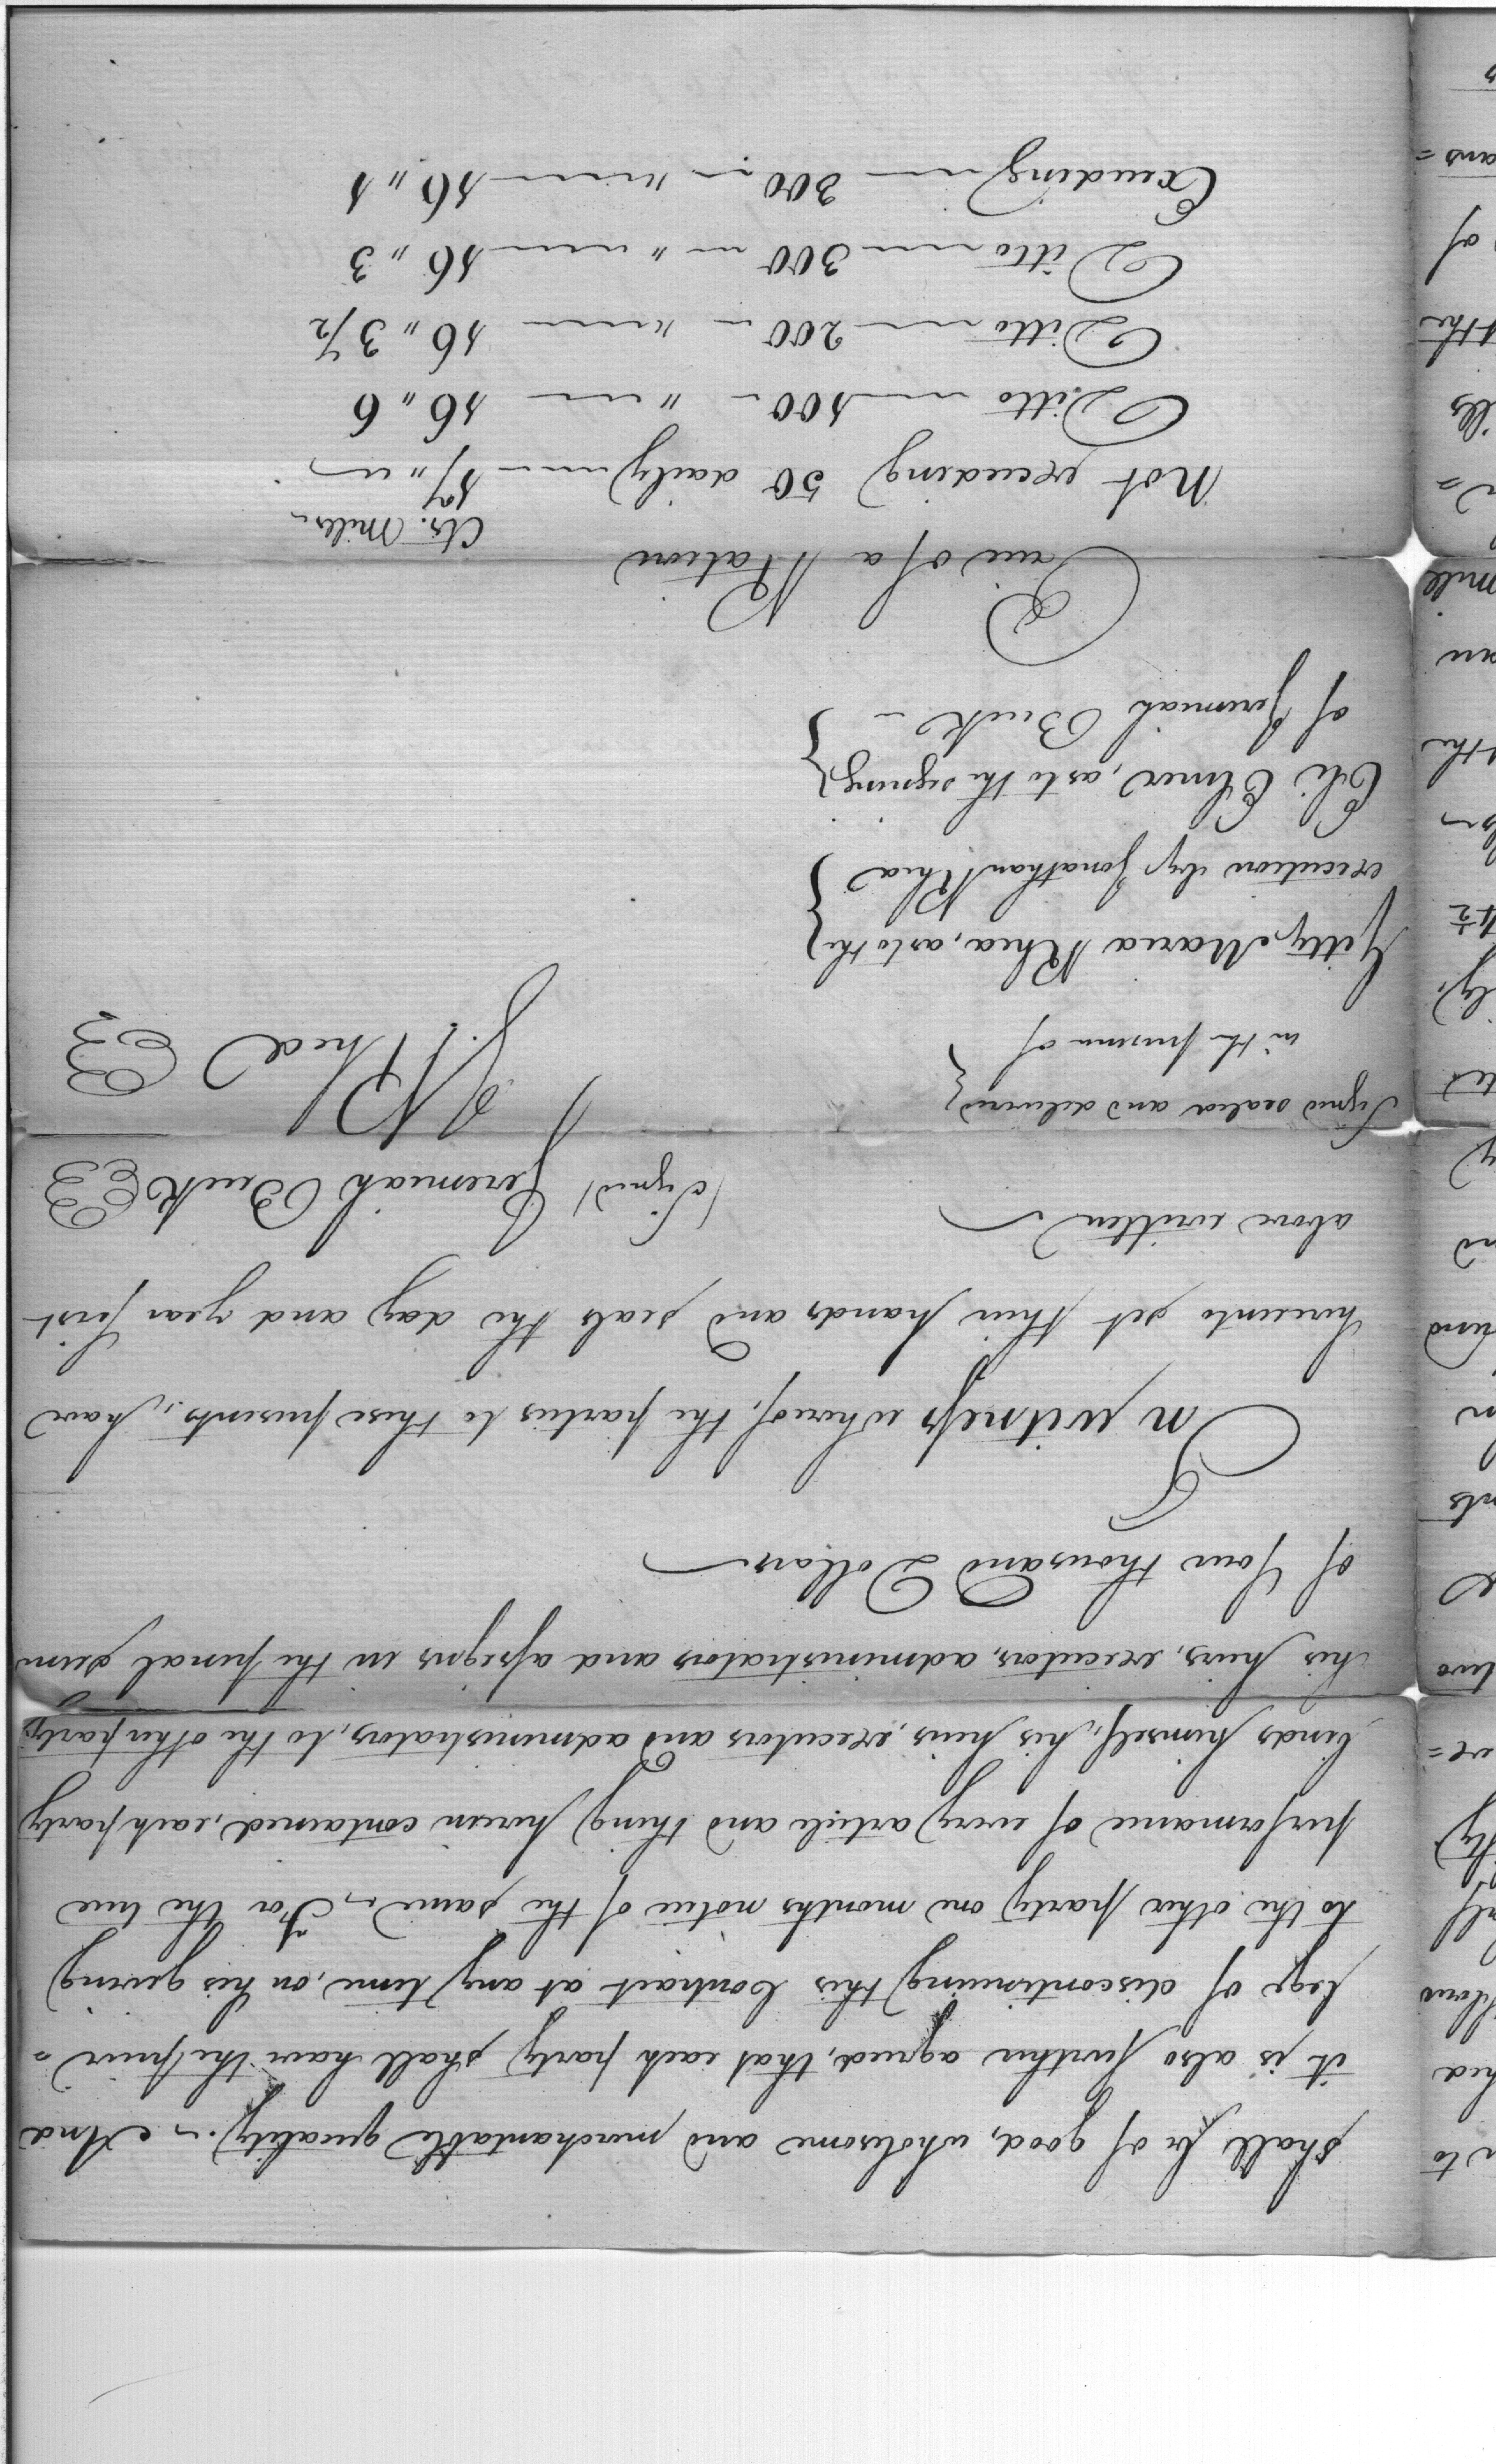 shall be of good, wholesome and merchantable quality. ~ And
it is also further agreed, that each party shall have the privi=
lege of discontinuing this Contract at any time, on his giving
to the other party one months notice of the same ~ For the true
performance of every article and thing herein contained, each party
binds himself, his heirs, executors and administrators, to the other party,
his heirs, executors, administrators and assigns in the penal sum
of four thousand Dollars ~
In witness whereof, the parties to these presents, have
hereunto set their hands and seals the day and year first
above written ~
(Signed) Jeremiah Buck
J. Rhea
Signed sealed and delivered
in the presence of
Maria Rhea, as to the
execution by Jonathan Rhea
Eli Elmer, as to the signing
of Jeremiah Buck ~
Price of a Ration
Cts. Mills ~
Not exceeding 50 daily 17 "
Ditto 100 " 16 " 6
Ditto 200 " 16 " 3 1/2
Ditto 300 " 16 " 3
Exceeding 300 " 16 " 1